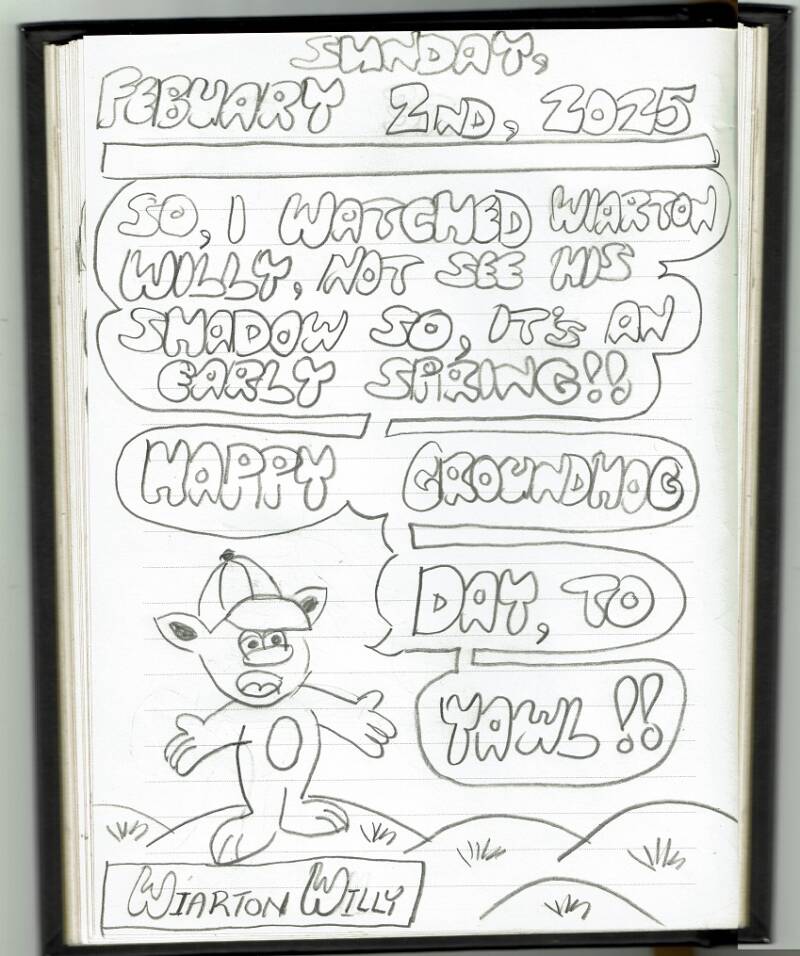 SUNDAY,
FEBUARY 2ND, 2025
SO, I WATCHED WIARTON
WILLY, NOT SEE HIS
SHADOW SO, IT'S AN
EARLY SPRING!!
HAPPY GROUNDHOG
DAY, TO
YAWL!!
WIARTON WILLY